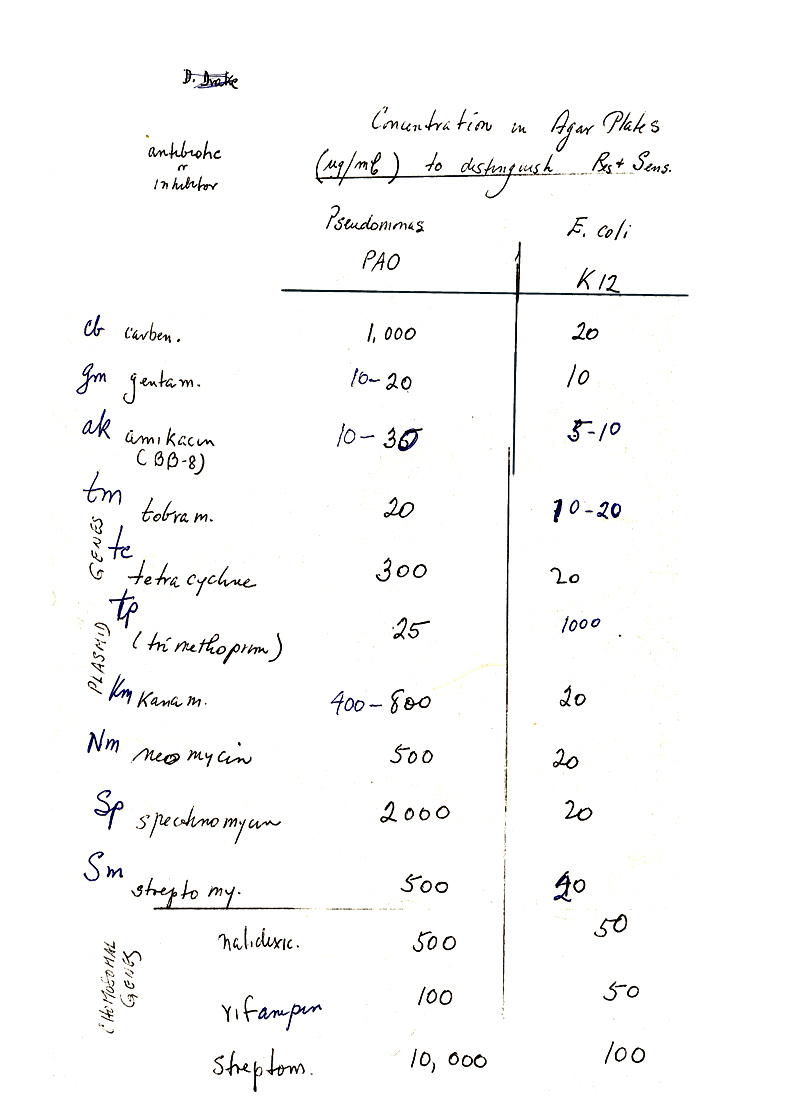 D. Drake
Concentration in Agar Plates
(ug/ml) to distinguish Res + Sens.
antibiotic
or
inhibitor
Pseudomonas
PAO
E. coli
K12
cb carben. 1,000 20
gm gentam. 10-20 10
ak amikacin 10-30 5-10
(BB-8)
tm tobram. 20 10-20
tc tetracycline 300 20
tp (trimethoprim) 25 1000
Km Kanam. 400-800 20
Nm neomycin 500 20
Sp spectinomycin 2000 20
Sm streptomy. 500 20
PLASMID GENES
nalidixic. 500 50
rifampin 100 50
streptom. 10,000 100
CHOMOSOMAL
GENES